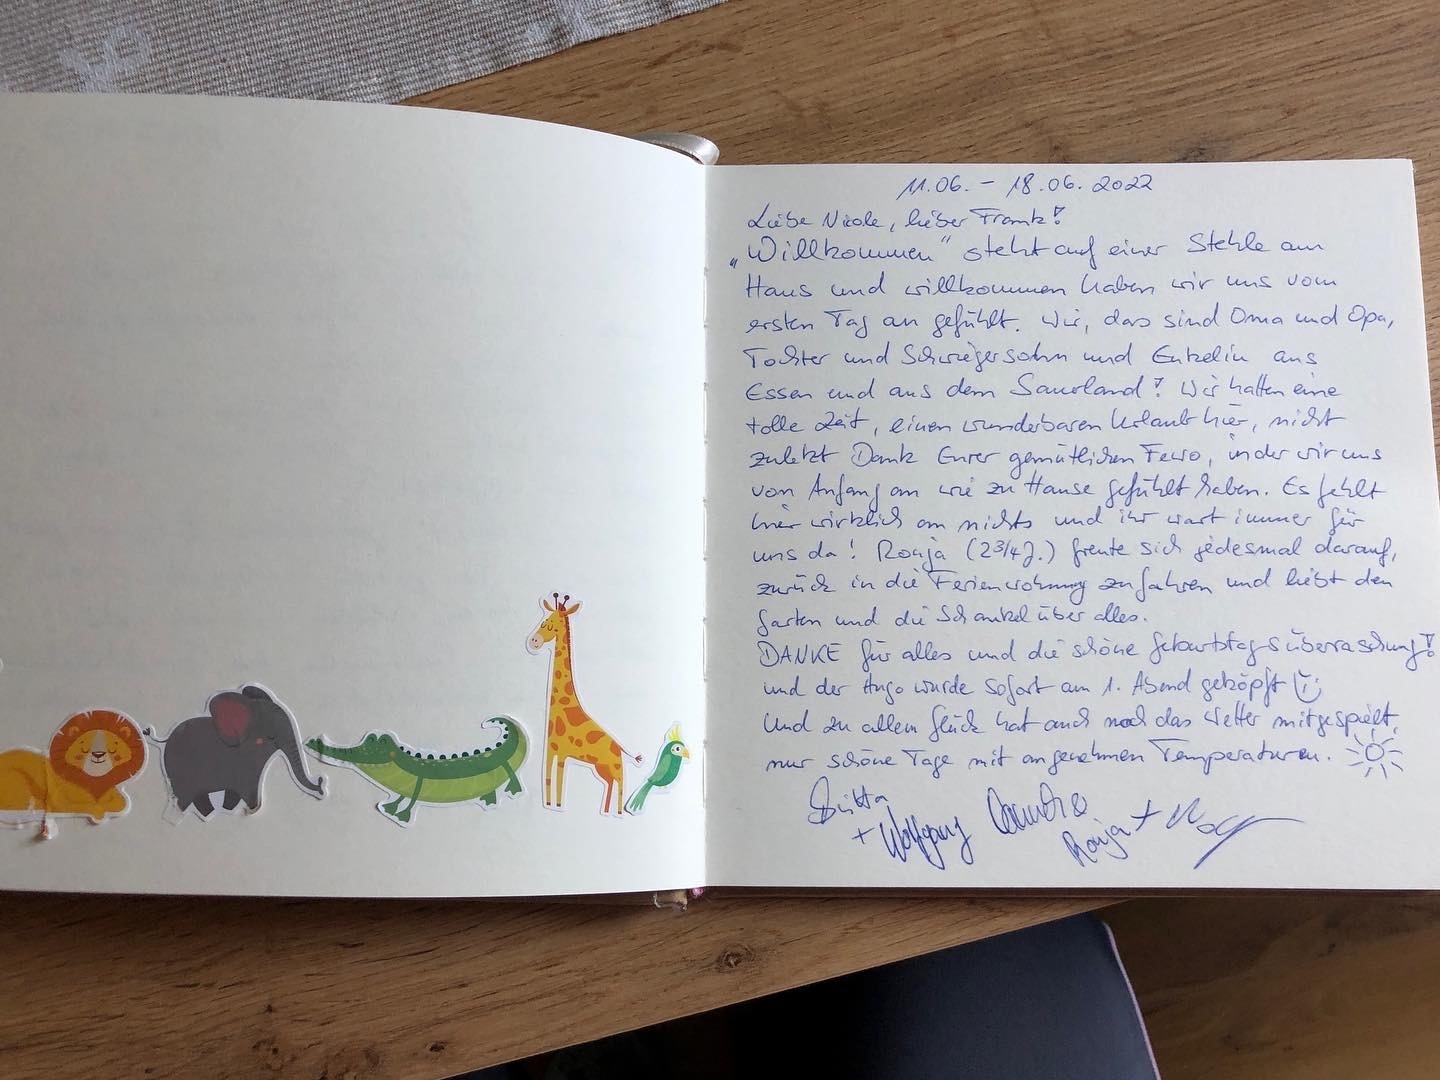 11.06. - 18.06.2022
Liebe Nicole, lieber Frank!
„Willkommen" steht auf einer Stehle am
Haus und willkommen haben wir uns vom
ersten Tag an gefühlt. Wir, das sind Oma und Opa,
Tochter und Schwiegersohn und Enkelin aus
Essen und aus dem Sauerland! Wir hatten eine
tolle Zeit, einen wunderbaren Urlaub hier, nicht
zuletzt Dank Eurer gemütlichen Fewo, in der wir uns
von Anfang an wie zu Hause gefühlt haben. Es fehlt
hier wirklich an nichts und ihr wart immer für
uns da! Ronja (2 3/4 J.) freute sich jedesmal darauf,
zurück in die Ferienwohnung zu fahren und liebt den
Garten und die Schaukel über alles.
DANKE für alles und die schöne Geburtstagsüberraschung!
und der Hugo wurde sofort am 1. Abend geköpft
Und zu allem Glück hat auch noch das Wetter mitgespielt,
nur schöne Tage mit angenehmen Temperaturen.
Britta
+ Wolfgang
Ronja +